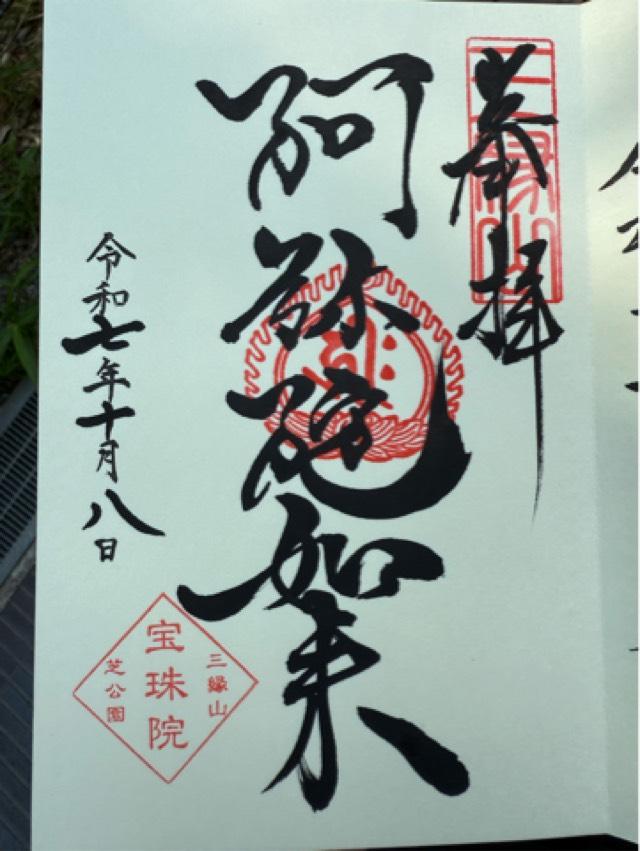 奉拝
三縁山
阿弥陀如来
令和七年十月八日
三縁山
宝珠院
芝公園